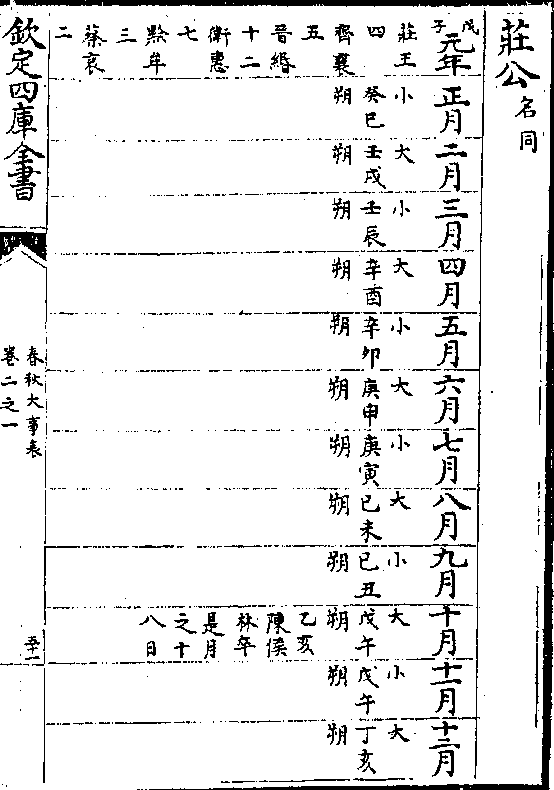 莊公名同
戊子
元年
莊王
四
齊襄
五
晉緡
十二
衛惠
七
黔牟
三
蔡哀
二
正月
小
癸巳
朔
二月
大
壬戌
朔
三月
小
壬辰
朔
四月
大
辛酉
朔
五月
小
辛卯
朔
六月
大
庚申
朔
七月
小
庚寅
朔
八月
大
已未
朔
九月
小
已丑
朔
十月
大
戊午
朔
乙亥
陳侯
林卒
是月
之十
八日
十一月
小
戊午
朔
十二月
大
丁亥
朔
欽定四庫全書
春秋大事表
卷二之一